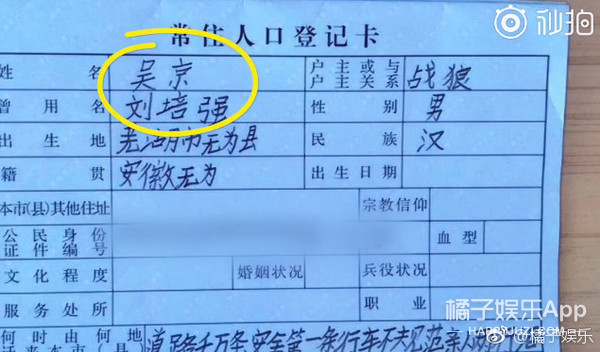 秒拍
常住人口登记卡
姓名 吴京 户主或与户主关系 战狼
曾用名 刘培强 性别 男
出生地 芜湖市无为县 民族 汉
籍贯 安徽无为 出生日期
本市(县)其他住址 宗教信仰
公民身份证件编号 血型
文化程度 婚姻状况 兵役状况
服务处所 职业
何时由何地 道路千万条安全第一条行车不规范亲人两行
橘子娱乐App
HAPPYJUZI.COM
@橘子娱乐